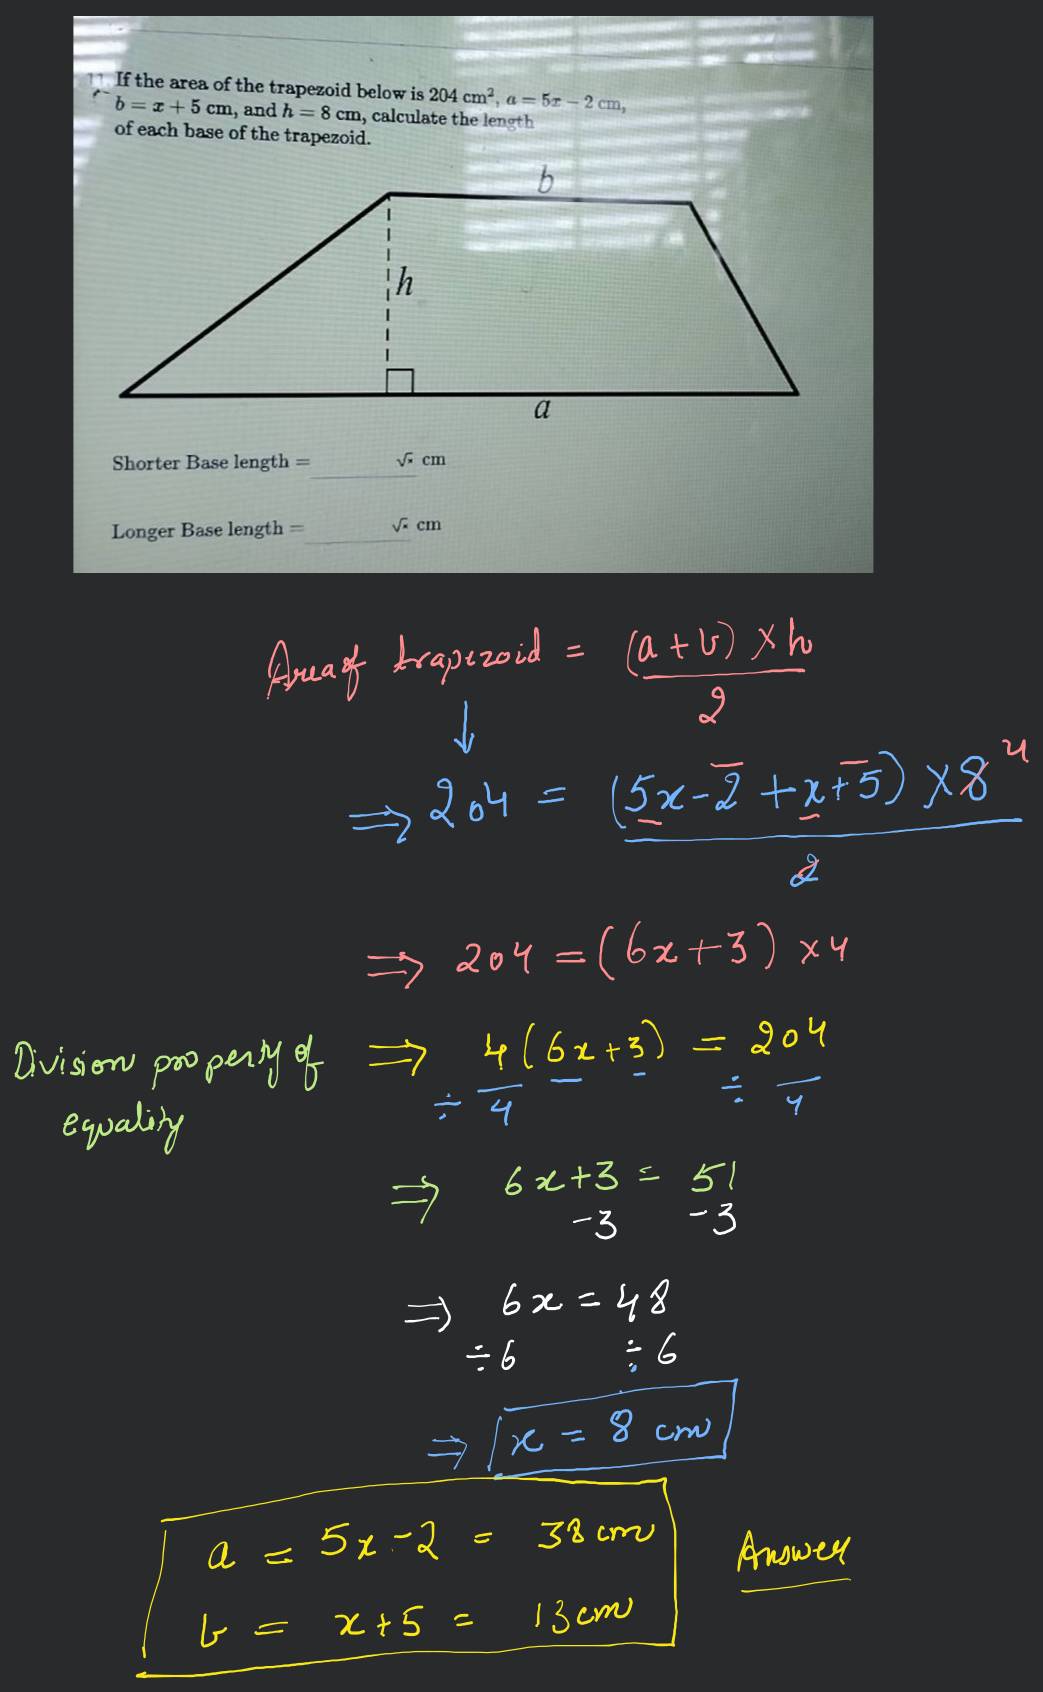 11. If the area of the trapezoid below is 204 cm², a = 5x − 2 cm,
b = x + 5 cm, and h = 8 cm, calculate the length
of each base of the trapezoid.
b
h
a
Shorter Base length = ______ √ cm
Longer Base length = ______ √ cm
Area of trapezoid = (a + b) × h / 2
↓
⇒ 204 = (5x − 2 + x + 5) × 8 / 2
4
⇒ 204 = (6x + 3) × 4
Division property of equality ⇒ 4(6x + 3) = 204
÷ 4 ÷ 4
⇒ 6x + 3 = 51
−3 −3
⇒ 6x = 48
÷6 ÷6
⇒ x = 8 cm
a = 5x − 2 = 38 cm
Answer
b = x + 5 = 13 cm